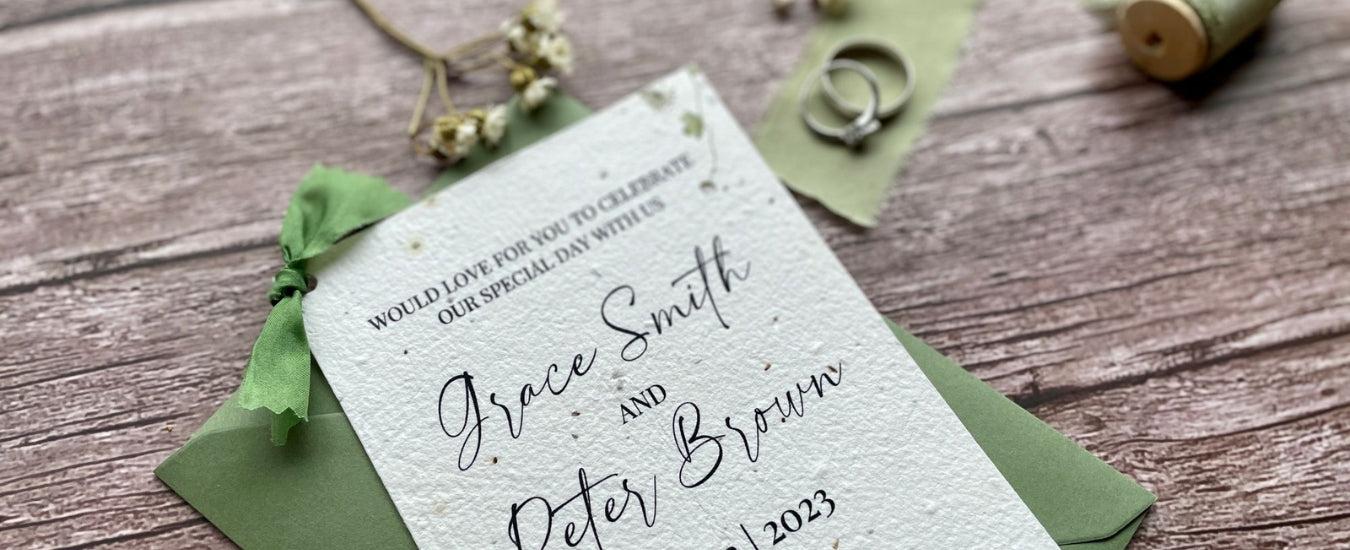 WOULD LOVE FOR YOU TO CELEBRATE
OUR SPECIAL DAY WITH US
Grace Smith
AND
Peter Brown
| 2023